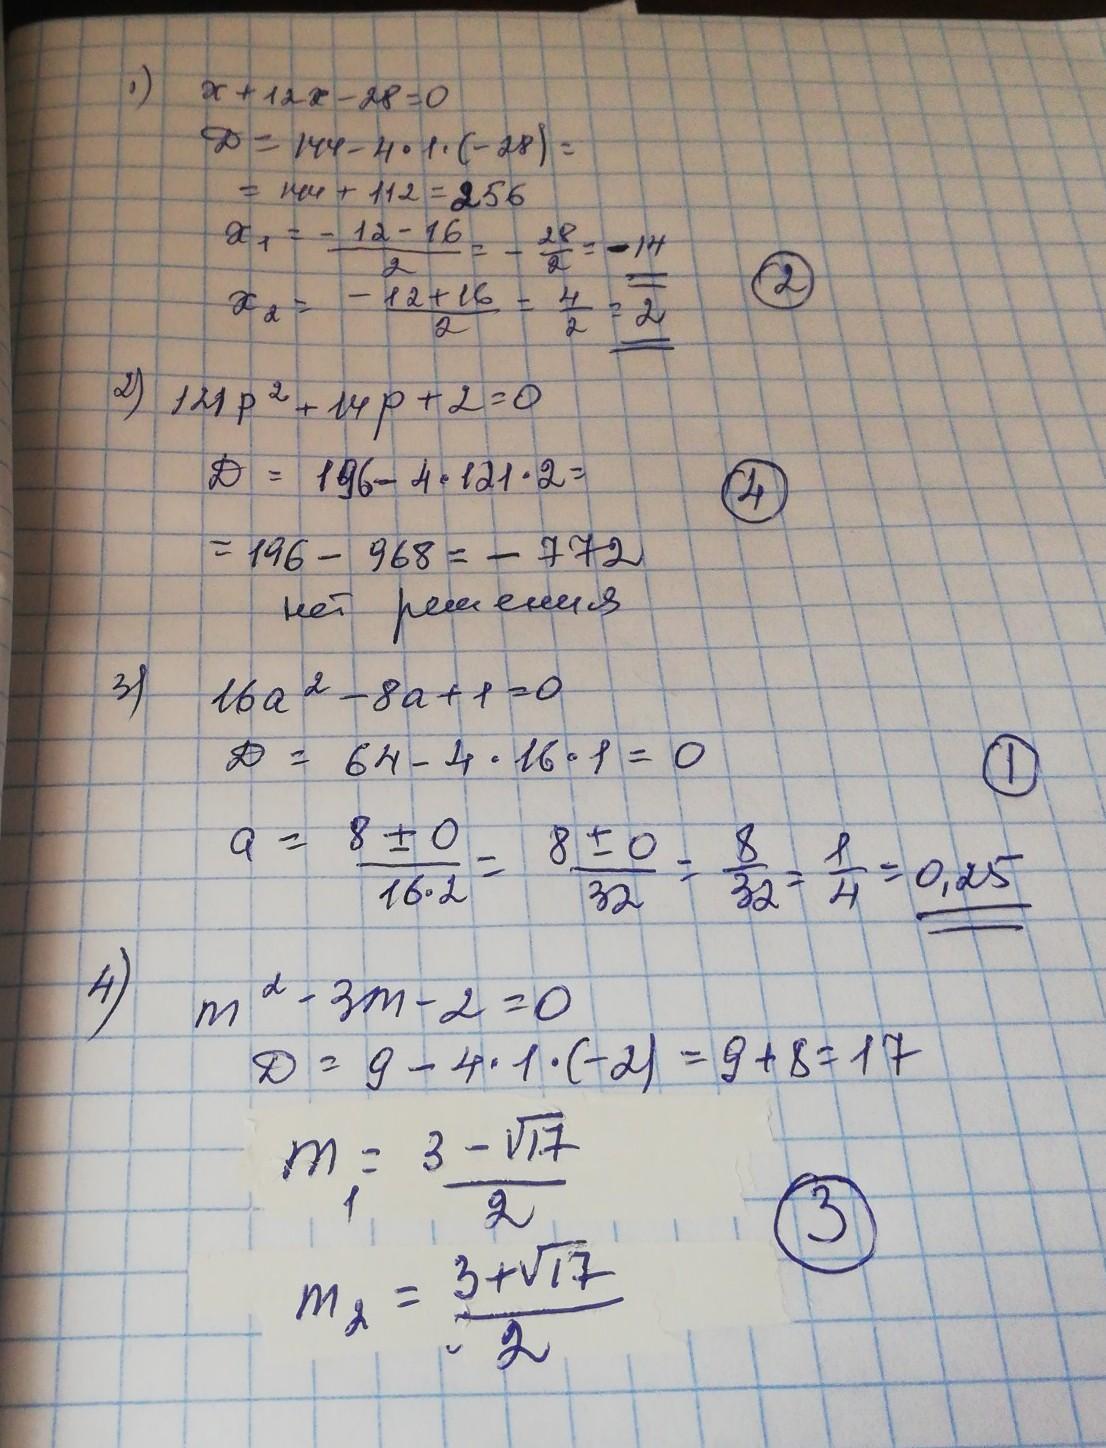 1) x+12x-28=0
D = 144-4·1·(-28) =
= 144 + 112 = 256
x₁ = (-12-16)/2 = -28/2 = -14
②
x₂ = (-12+16)/2 = 4/2 = 2
2) 121p² + 14p + 2 = 0
D = 196 - 4·121·2 =
④
= 196 - 968 = -772
нет решения
3) 16a² - 8a + 1 = 0
D = 64 - 4·16·1 = 0
①
a = (8 ± 0)/(16·2) = (8 ± 0)/32 = 8/32 = 1/4 = 0,25
4) m² - 3m - 2 = 0
D = 9 - 4·1·(-2) = 9 + 8 = 17
m₁ = (3 - √17)/2
③
m₂ = (3 + √17)/2